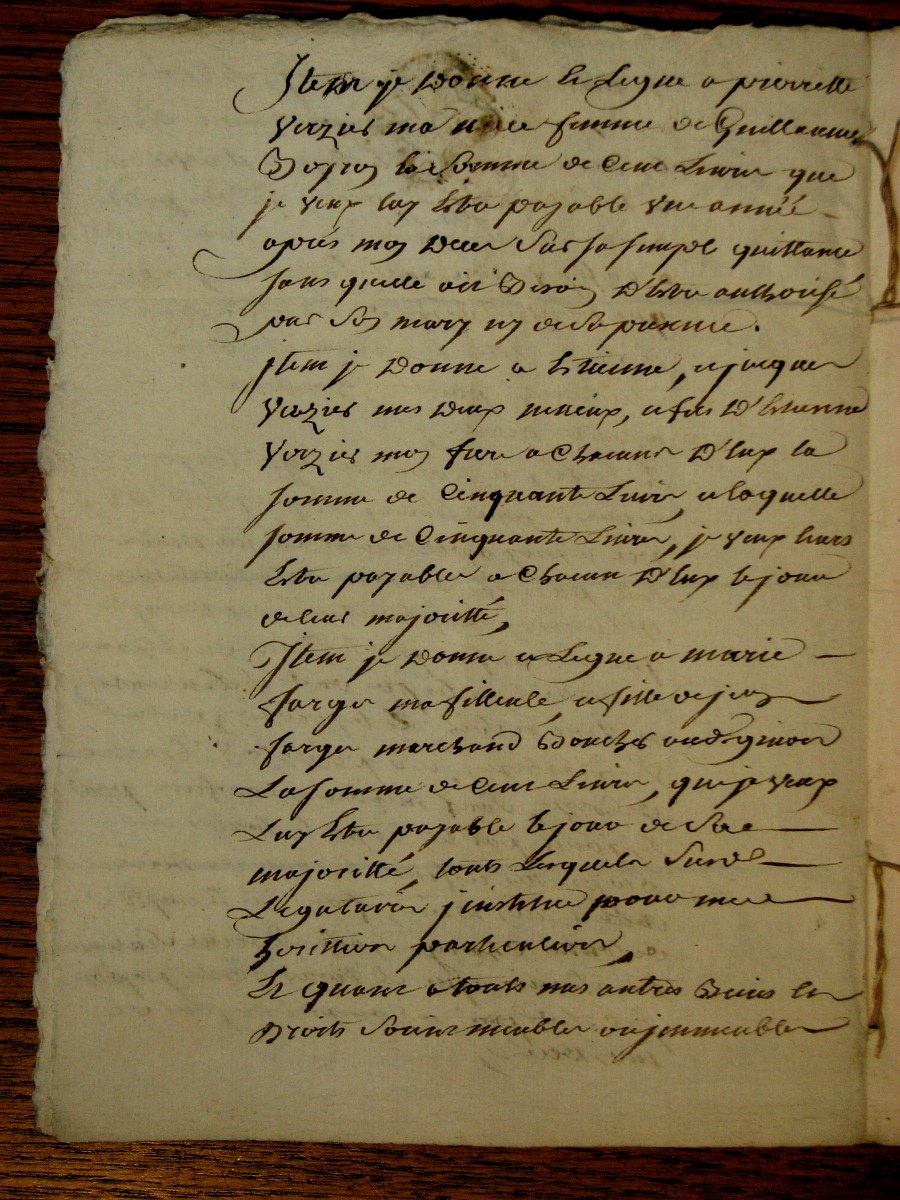 Item je Donne et Legue a pierrette
Verzier ma niece femme de Guillaume
la Somme de Cent Livres que
je veux luy Estre payable une année
aprés mon Deces Sur sa simple quittance
sans quelle ait Besoin D'Estre authorisé
par Son mary ny de Sa presence.
Item je Donne a Estienne, et jacques
Verzier mes Deux neveux, et fils D'Estienne
Verzier mon frere a Chacuns D'Eux la
somme de Cinquante Livres, et laquelle
somme de Cinquante Livres, je veux leurs
Estre payables a Chacun D'Eux le jour
de leur majoritté,
Item je Donne et Legue a marie
farges ma filleule, et fille de jean
farges marchand Boucher
La somme de Cent Livres, que je veux
Luy Estre payable le jour de Sa
majoritté, touts Lesquels Susd
Legataires j institue pour mes
heritiers particuliers,
Et quant a touts mes autres Biens et
Droits Soient meubles ou jmmeubles